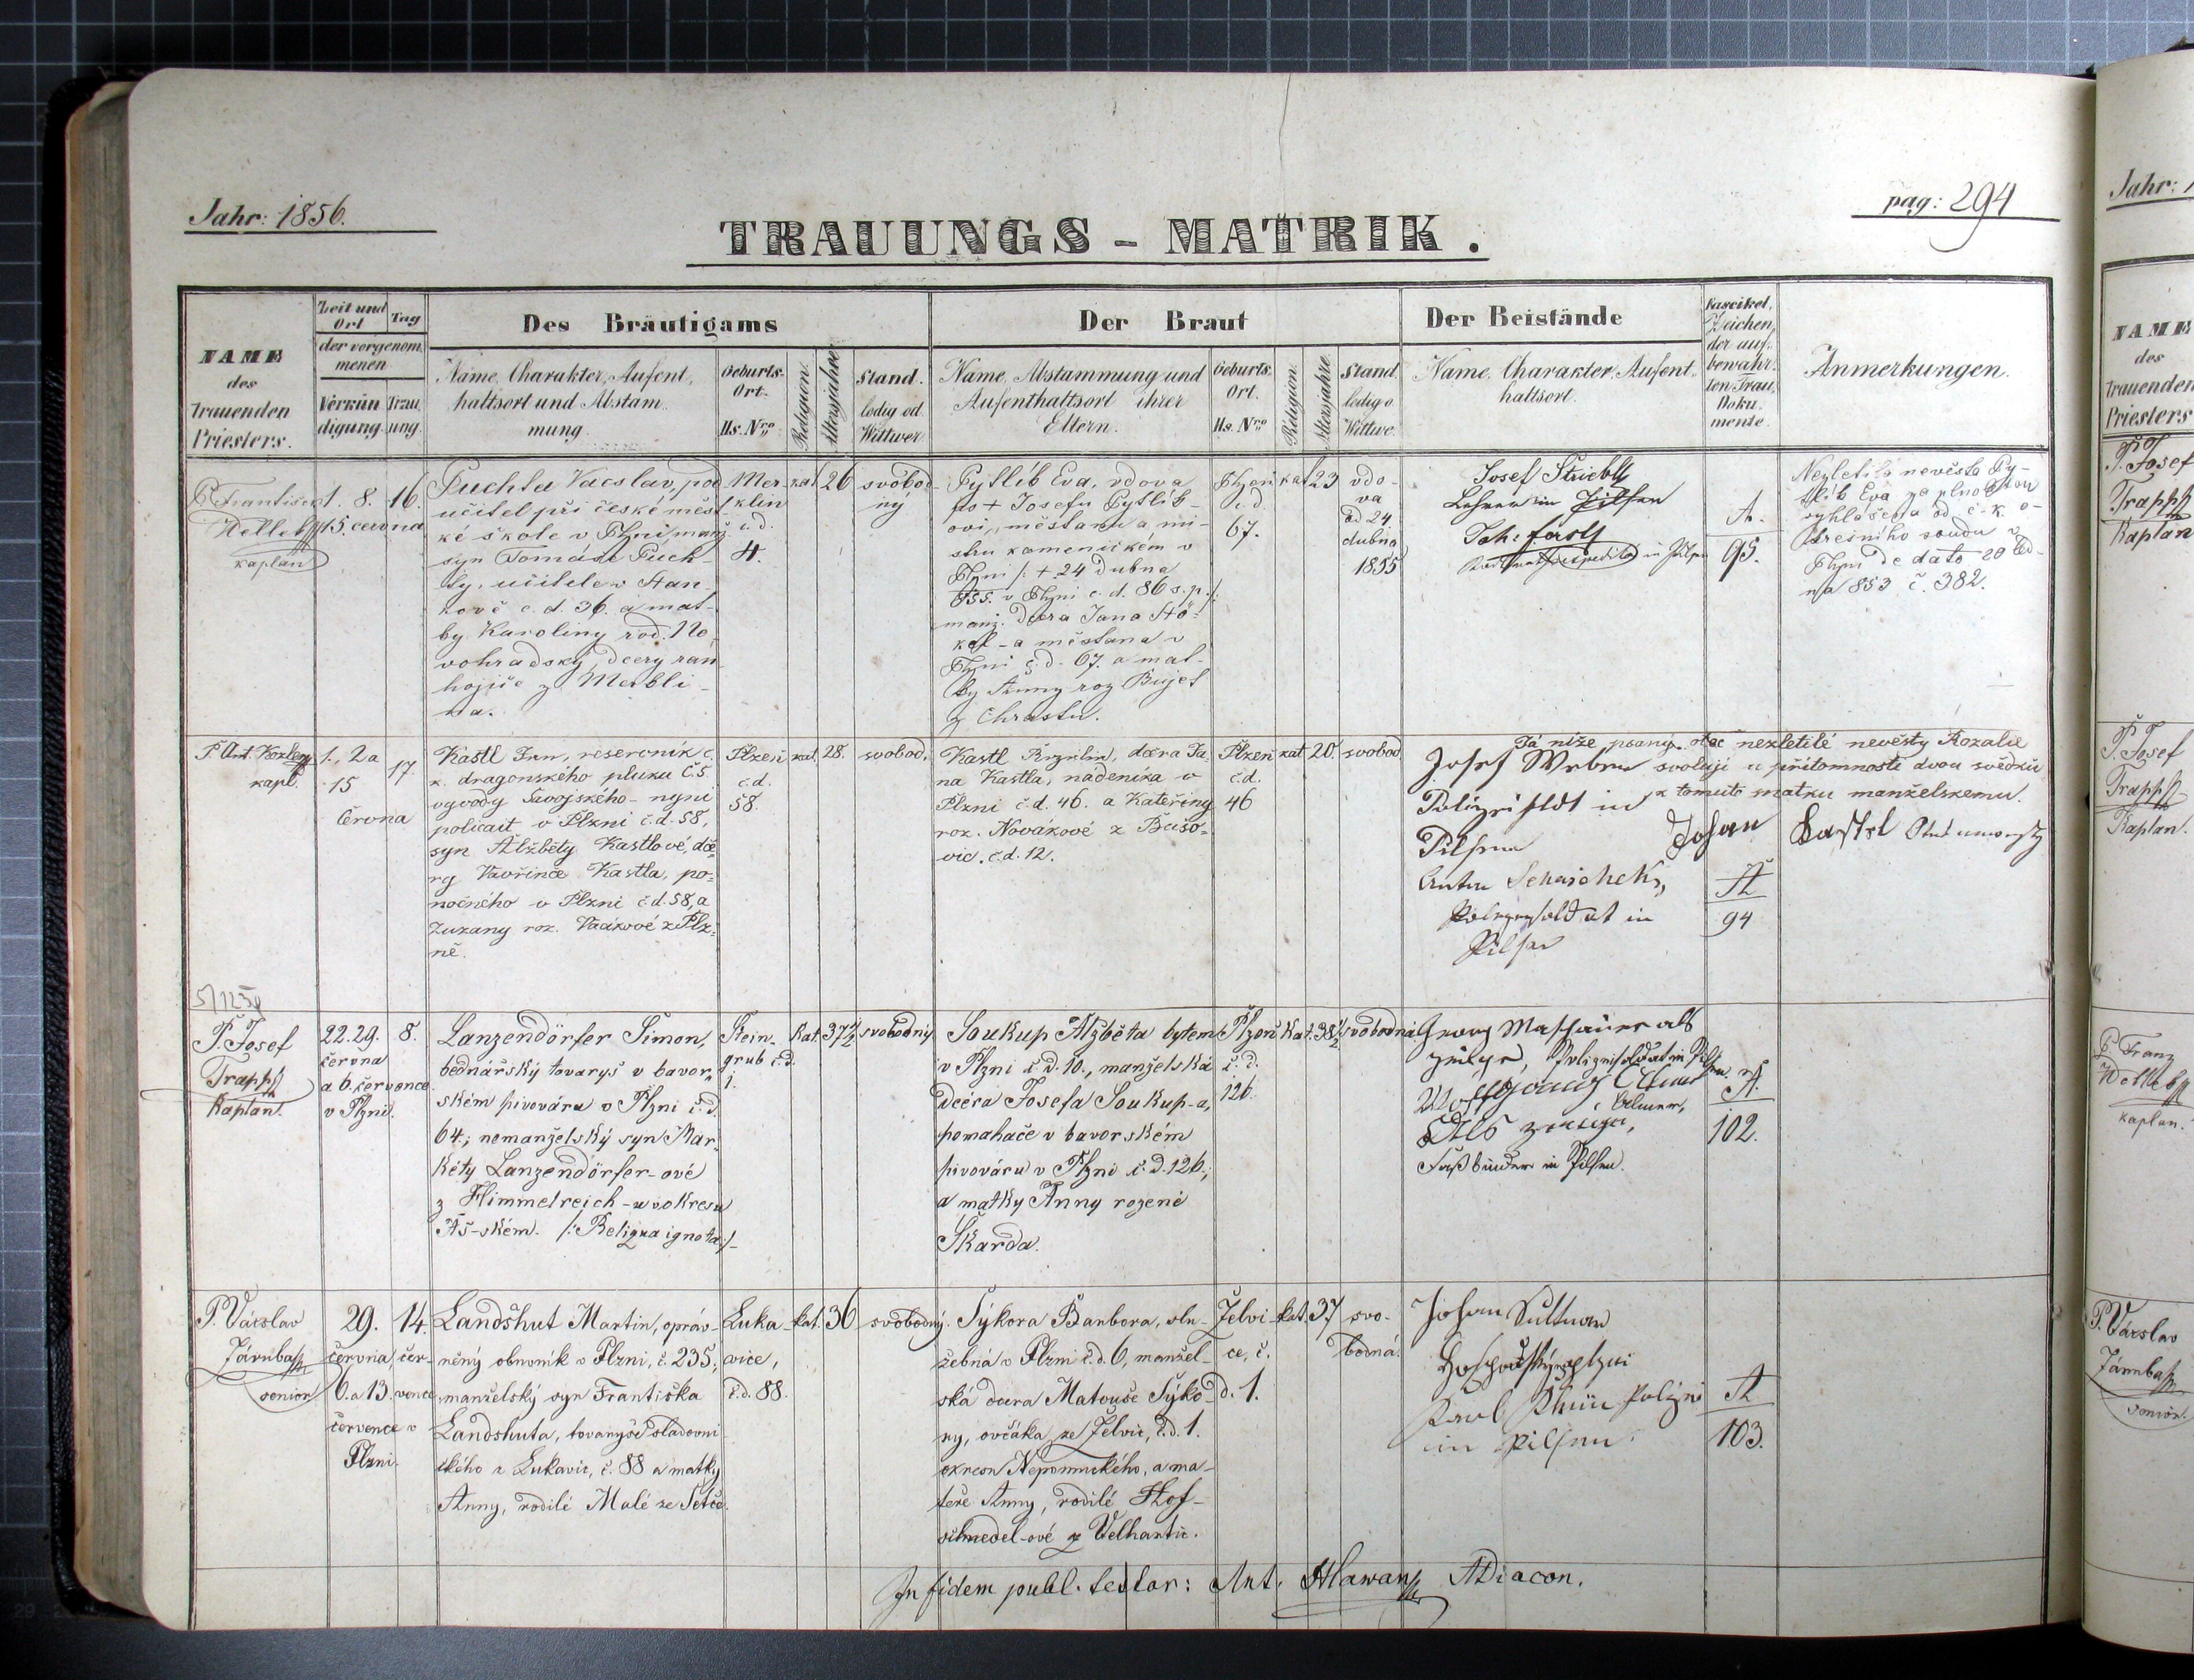 Jahr: 1856.
pag: 294
TRAUUNGS - MATRIK.
NAME
des
Trauenden
Priesters.
Zeit und
Ort
Tag
der vorgenom,
menen
Verkün
digung.
Trau,
ung.
Des Bräutigams
Name, Charakter, Aufent,
haltsort und Abstam
mung.
Geburts-
Ort.
Hs. Nro
Religion.
Altersjahre
Stand.
ledig od.
Wittwer
Der Braut
Name, Abstammung und
Aufenthaltsort ihrer
Eltern.
Geburts.
Ort.
Hs. Nro
Religion.
Altersjahre.
Stand
ledig o.
Wittwe.
Der Beistände
Name, Charakter, Aufent-
haltsort.
Fascikel,
Zeichen,
der auf,
bewahr,
ten Trau,
Doku-
mente.
Anmerkungen.
P. František
Welleby
kaplan
1. 8.
15. června
16.
Puchta Vacslav, pod
učitel při české měst
ké škole v Plzni, manž.
syn Tomáše Puch-
ty, učitele v Stan
kově č. d. 36. a mat-
ky Karoliny rod. No
vohradský, dcery ran
hojiče z Merkli-
na.
Mer-
klin
č.d.
4.
kat
26
svobod
ný
Pytlíb Eva, vdova
po + Josefu Pytlíb-
ovi, měšťanu a mi-
stru kamenickém v
Plzni /: + 24 dubna
855. v Plzni č. d. 86 s. p. :/
manž. dcera Jana Stö-
kel-a měšťana v
Plzni č. d. 67. a mat-
ky Anny roz Bujet
z Chrastu.
Plzeň
č. d.
67.
kat
23
vdo-
va
od 24
dubna
1855
Josef Striebl
Lehrer in Pilsen
Joh: Fastl
in Pilsen
A.
95.
Nezletilá nevěsta Py-
tlíb Eva za plnoletou
vyhlášena od c. k. o-
kresního soudu v
Plzni de dato 20 led-
na 853 č. 382.
P. Ant. Kozlerg
kapl.
1., 2 a
15
června
17
Kastl Jan, reservník c.
k. dragonského pluku č. 5
vyvody Savojského - nyní
policait v Plzni č. d. 58,
syn Alžběty Kastlové, dce-
ry Vavřince Kastla, po-
nočného v Plzni č. d. 58, a
Zuzany roz. Vacákové z Plz-
ně.
Plzeň
č.d.
58.
kat.
28.
svobod.
Kastl Rozalie, dcera Ja-
na Kastla, nadeníka v
Plzni č. d. 46. a Kateřiny
roz. Novákové z Bušo-
vic. č. d. 12.
Plzeň
č.d.
46
kat.
20.
svobod.
Já níže psaný otec nezletilé nevěsty Rozalie
svoluji u přítomnosti dvou svědků
k tomuto svazku manželskému.
Josef Weber
Polizeisoldt in
Pilsen
Johan Kastel
Anton Schaschek,
Polizeysoldat in
Pilsen
A
94
P. Josef
Trapp
Kaplan.
22. 29.
června
a 6. července
v Plzni.
8.
Lanzendörfer Šimon,
bednářský tovaryš v bavor-
ském pivováru v Plzni č. d.
64; nemanželský syn Mar-
kéty Lanzendörfer-ové
z Himmelreich-u v okresu
Aš-ském. /: Reliqua ignota :/
Stein-
grub č. d.
1.
Kat.
37 1/2
svobodný
Soukup Alžběta bytem
v Plzni č. d. 10., manželská
dcera Josefa Soukup-a,
pomahače v bavorském
pivováru v Plzni č. d. 126;
a matky Anny rozené
Škarda.
Plzeň
č. d.
126.
Kat.
38 1/2
svobodná
Georg Maschauer als
zeuge, Polizeisoldat in Pilsen.
Wolfgang Ellmer
Elmer,
Als zeuge,
Faßbinder in Pilsen.
A.
102.
P. Vácslav
Járnba
senior
29.
června
6. a 13.
července v
Plzni.
14.
čer-
vence
Landshut Martin, opráv-
něný obuvník v Plzni, č. 235,
manželský syn Františka
Landshuta, tovaryše sladovni-
ckého z Lukavic, č. 88 a matky
Anny, rodilé Malé ze Setče.
Luka-
vice,
č. d. 88.
kat.
36
svobodný.
Sýkora Barbora, slu-
žebná v Plzni č. d. 6, manžel-
ská dcera Matouše Sýko-
ry, ovčáka ze Želvic, č. d. 1.
okresu Nepomuckého, a ma-
teře Anny, rodilé Hof-
schmedel-ové z Velhartic.
Želvi-
ce, č.
d. 1.
kat.
37
svo-
bodná.
Johan Sultman
in Pilsen
A
103.
In fidem publ. testor: Ant. Hlawan ADiacon.
Jahr: 1
NAME
des
Trauenden
Priesters
P. Josef
Trapp
Kaplan
P. Josef
Trapp
Kaplan.
P. Franz
Welleby
kaplan.
P. Vácslav
Járnba
senior.